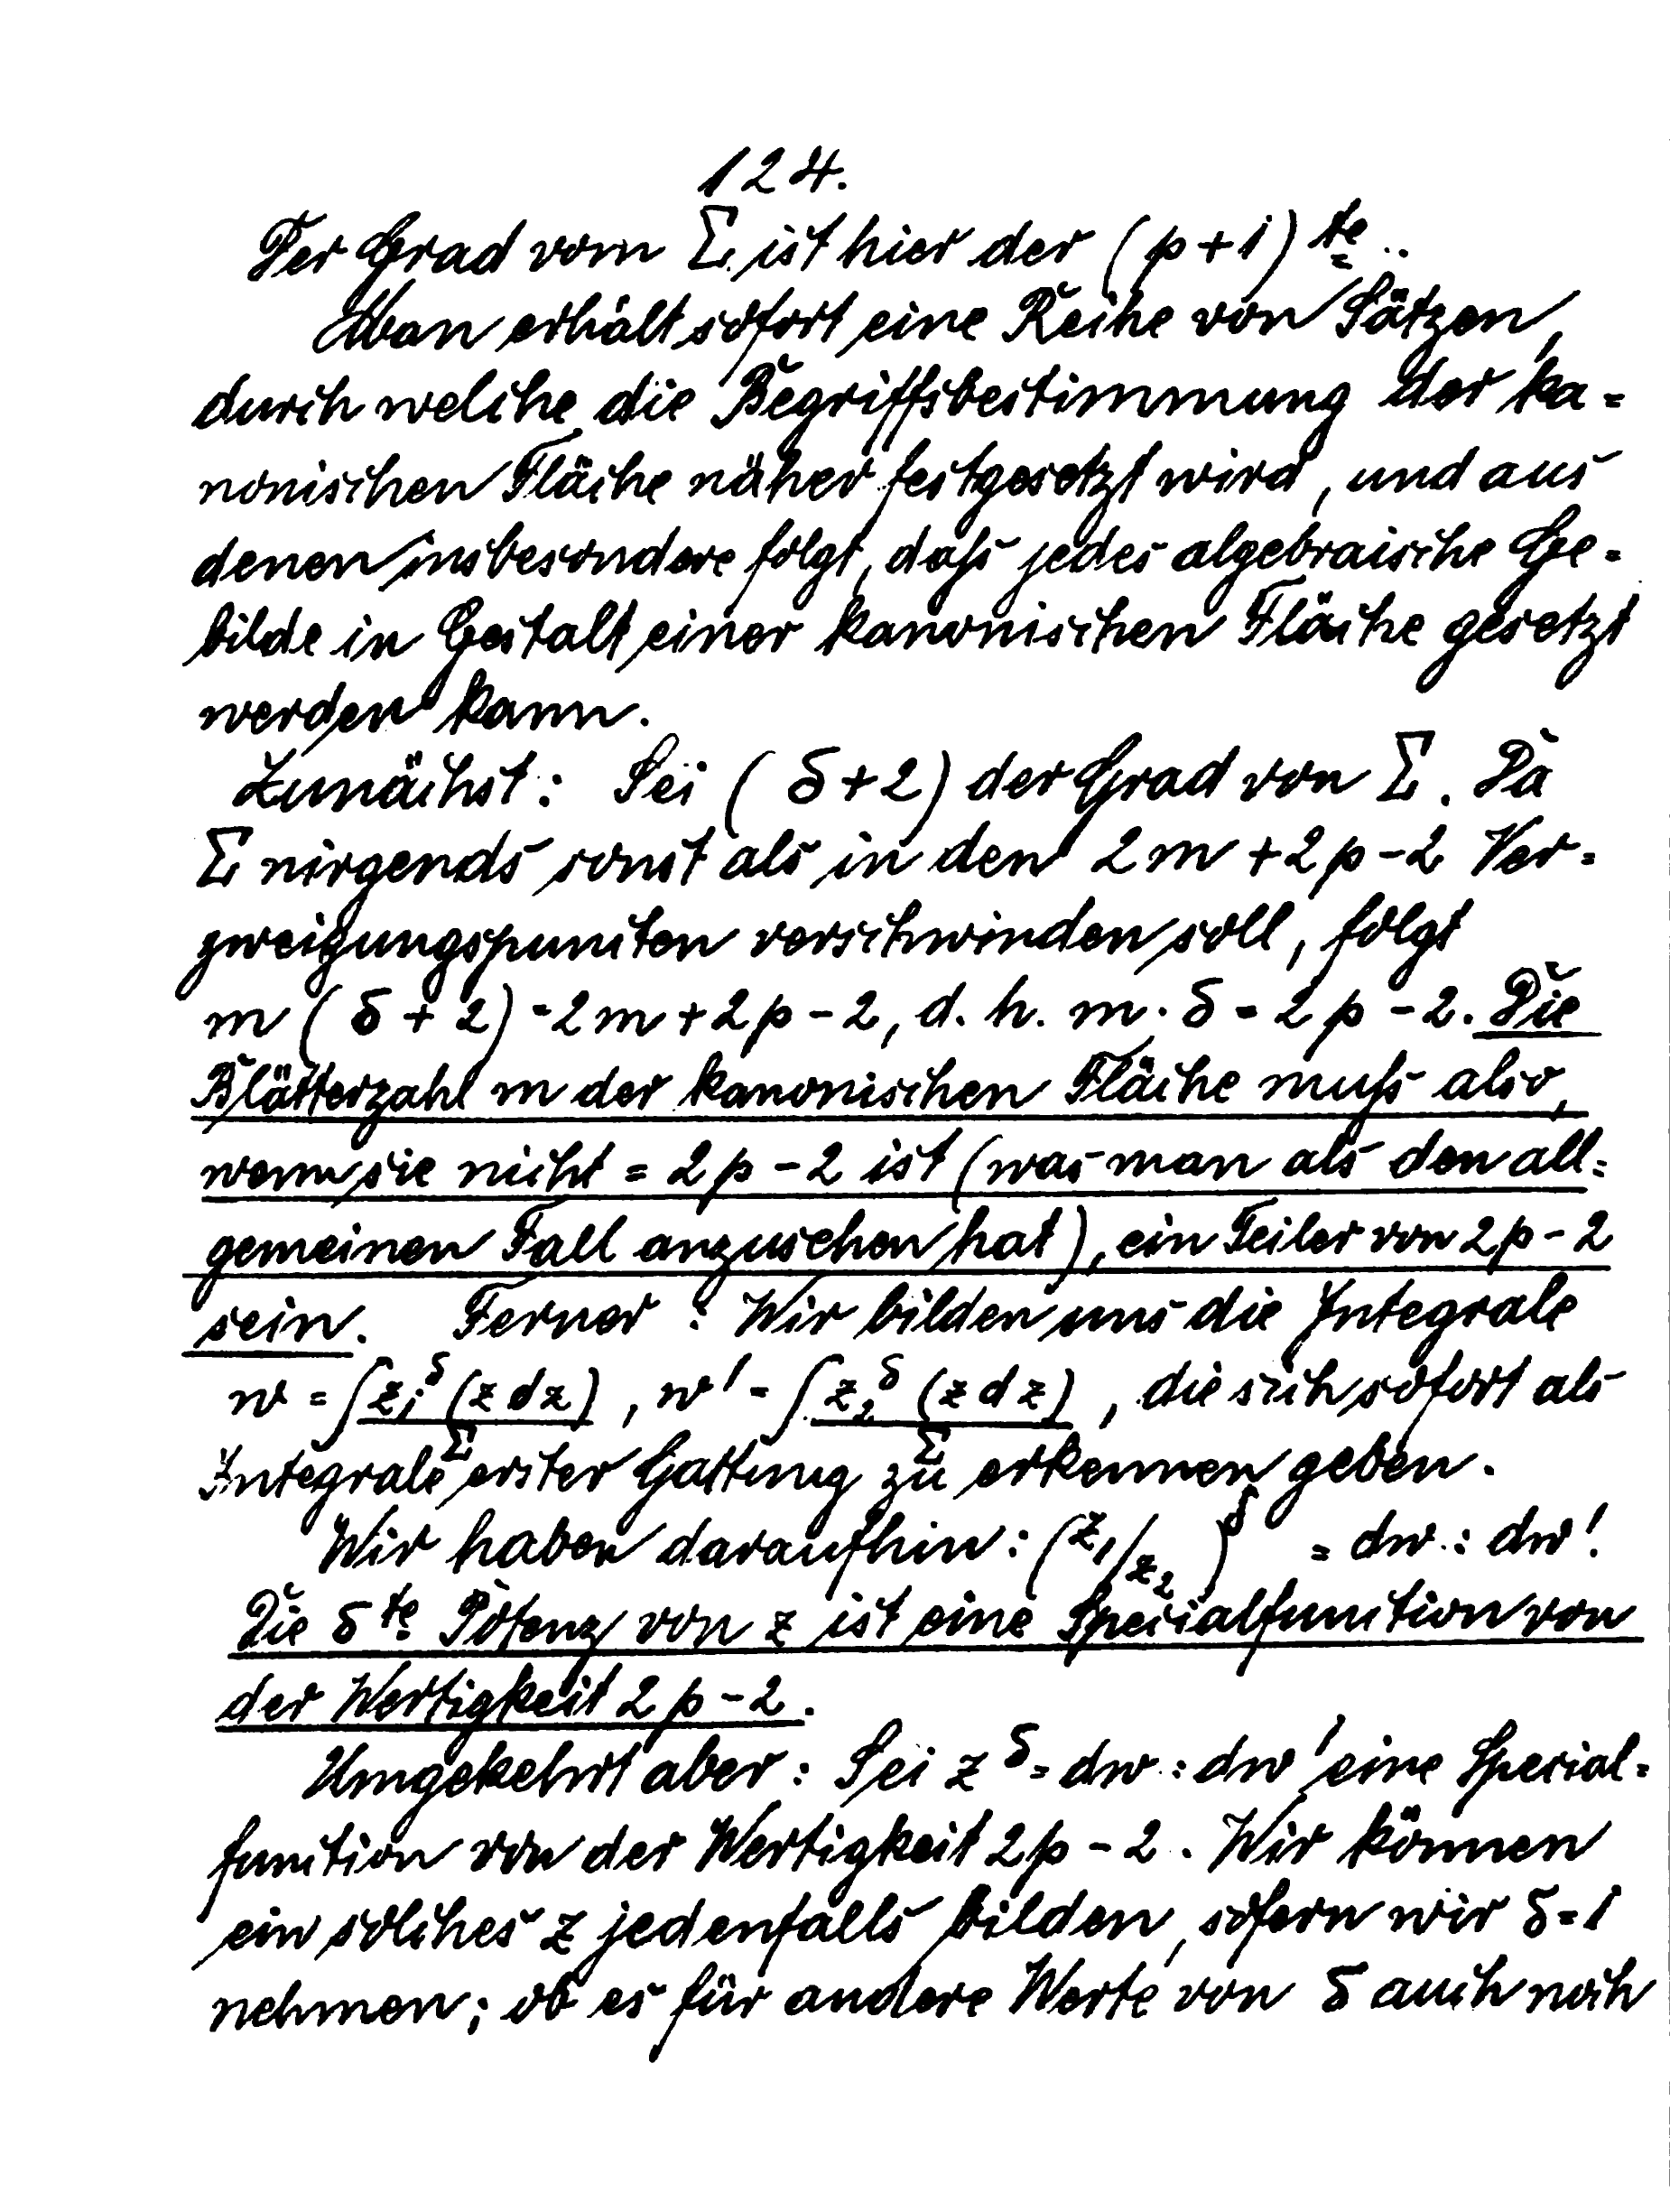 124.
Der Grad vom Σ ist hier der (p+1)te.
Man erhält sofort eine Reihe von Sätzen,
durch welche die Begriffsbestimmung der ka-
nonischen Fläche näher festgesetzt wird, und aus
denen insbesondere folgt, daß jedes algebraische Ge-
bilde in Gestalt einer kanonischen Fläche gesetzt
werden kann.
Zunächst: Sei (δ+2) der Grad von Σ. Da
Σ nirgends sonst als in den 2m+2p-2 Ver-
zweigungspuncten verschwinden soll, folgt
m(δ+2)=2m+2p-2, d. h. m·δ=2p-2. Die
Blätterzahl m der kanonischen Fläche muß also,
wenn sie nicht = 2p-2 ist (was man als den all-
gemeinen Fall anzusehen hat), ein Teiler von 2p-2
sein. Ferner: Wir bilden uns die Integrale
w = ∫ z₁^δ (z dz)/Σ, w' = ∫ z₂^δ (z dz)/Σ, die sich sofort als
Integrale erster Gattung zu erkennen geben.
Wir haben daraufhin: (z₁/z₂)^δ = dw : dw'.
Die δte Potenz von z ist eine Specialfunction von
der Wertigkeit 2p-2.
Umgekehrt aber: Sei z^δ = dw : dw' eine Special-
function von der Wertigkeit 2p-2. Wir können
ein solches z jedenfalls bilden, sofern wir δ=1
nehmen; ob es für andere Werte von δ auch noch